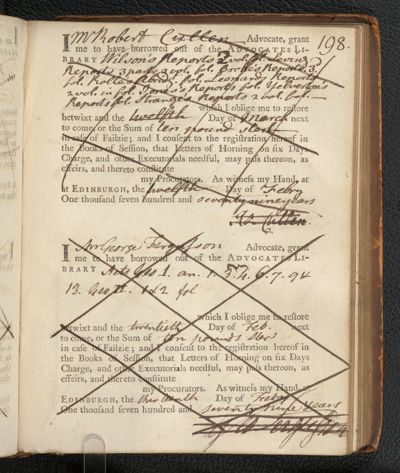 198.
I Mr Robert Cullen Advocate, grant
me to have borrowed out of the ADVOCATES LI-
BRARY Wilson's Reports 2 vol. fol. Levinz
Reports 3 parts 2 vol. fol. Reports 3
fol. Rolle's fol. Leonard Reports
2 vol. in fol. Jones's Reports fol. Yelverton's
Reports fol. Strange's Reports 2 vol. fol.
which I oblige me to restore
betwixt and the twelfth Day of March next
to come, or the Sum of ten pound sterl
in case of Failzie; and I consent to the registration hereof in
the Books of Session, that Letters of Horning on six Days
Charge, and other Executorials needful, may pass thereon, as
effeirs, and thereto constitute
my Procurators. As witness my Hand, at
at EDINBURGH, the twelfth Day of Febry
One thousand seven hundred and seventy nine years
Ro. Cullen
I Mr George Fergusson Advocate, grant
me to have borrowed out of the ADVOCATES LI-
BRARY Acts Geo. 2. an. 1. 3. 4. 6. 7. 94
13. Geo II. 1 & 2 fol
which I oblige me to restore
betwixt and the twentieth Day of Feb. next
to come, or the Sum of ten pounds Ster
in case of Failzie; and I consent to the registration hereof in
the Books of Session, that Letters of Horning on six Days
Charge, and other Executorials needful, may pass thereon, as
effeirs, and thereto constitute
my Procurators. As witness my Hand, at
EDINBURGH, the thirteenth Day of Febry
One thousand seven hundred and seventy nine years